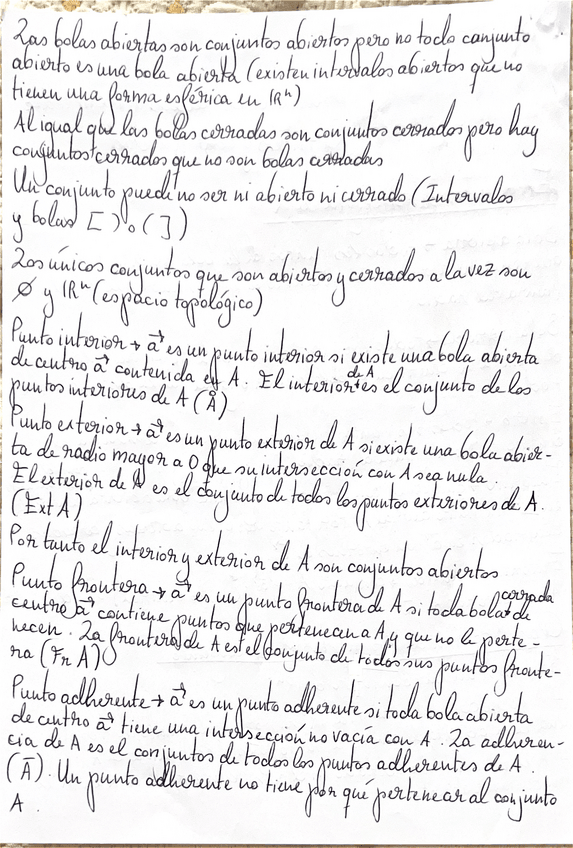 Las bolas abiertas son conjuntos abiertos pero no todo conjunto
abierto es una bola abierta (existen intervalos abiertos que no
tienen una forma esférica en ℝⁿ)
Al igual que las bolas cerradas son conjuntos cerrados pero hay
conjuntos cerrados que no son bolas cerradas
Un conjunto puede no ser ni abierto ni cerrado (Intervalos
y bolas [ ) o ( ])
Los únicos conjuntos que son abiertos y cerrados a la vez son
∅ y ℝⁿ (espacio topológico)
Punto interior → a⃗ es un punto interior si existe una bola abierta
de centro a⃗ contenida en A. El interior de A es el conjunto de los
puntos interiores de A (Å)
Punto exterior → a⃗ es un punto exterior de A si existe una bola abier-
ta de radio mayor a 0 que su intersección con A sea nula.
El exterior de A es el conjunto de todos los puntos exteriores de A.
(Ext A)
Por tanto el interior y exterior de A son conjuntos abiertos
Punto frontera → a⃗ es un punto frontera de A si toda bola cerrada de
centro a⃗ contiene puntos que pertenecen a A y que no le perte-
necen. La frontera de A es el conjunto de todos sus puntos fronte-
ra (Fr A)
Punto adherente → a⃗ es un punto adherente si toda bola abierta
de centro a⃗ tiene una intersección no vacía con A. La adheren-
cia de A es el conjuntos de todos los puntos adherentes de A.
(Ā). Un punto adherente no tiene por qué pertenecer al conjunto
A.